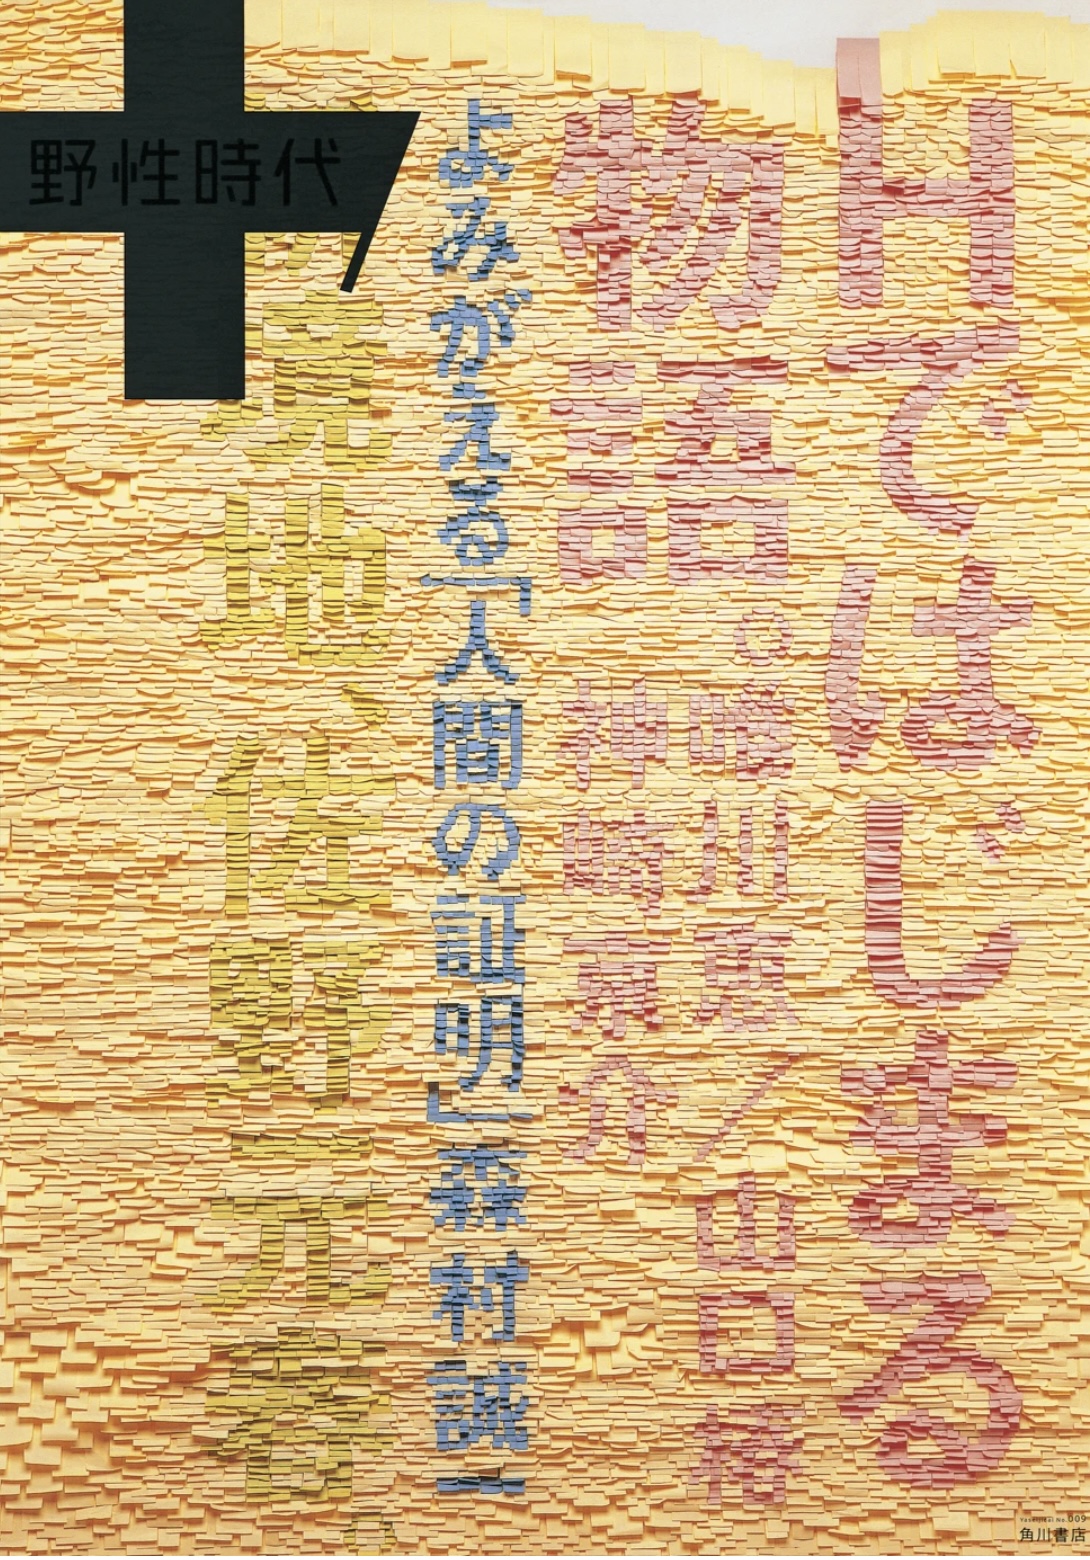 野性時代
Hではじまる
物語。
唯川恵/山口椿
神崎京介
よみがえる「人間の証明」森村誠一
境地、佐野元春。
Yaseijidai No.009
角川書店